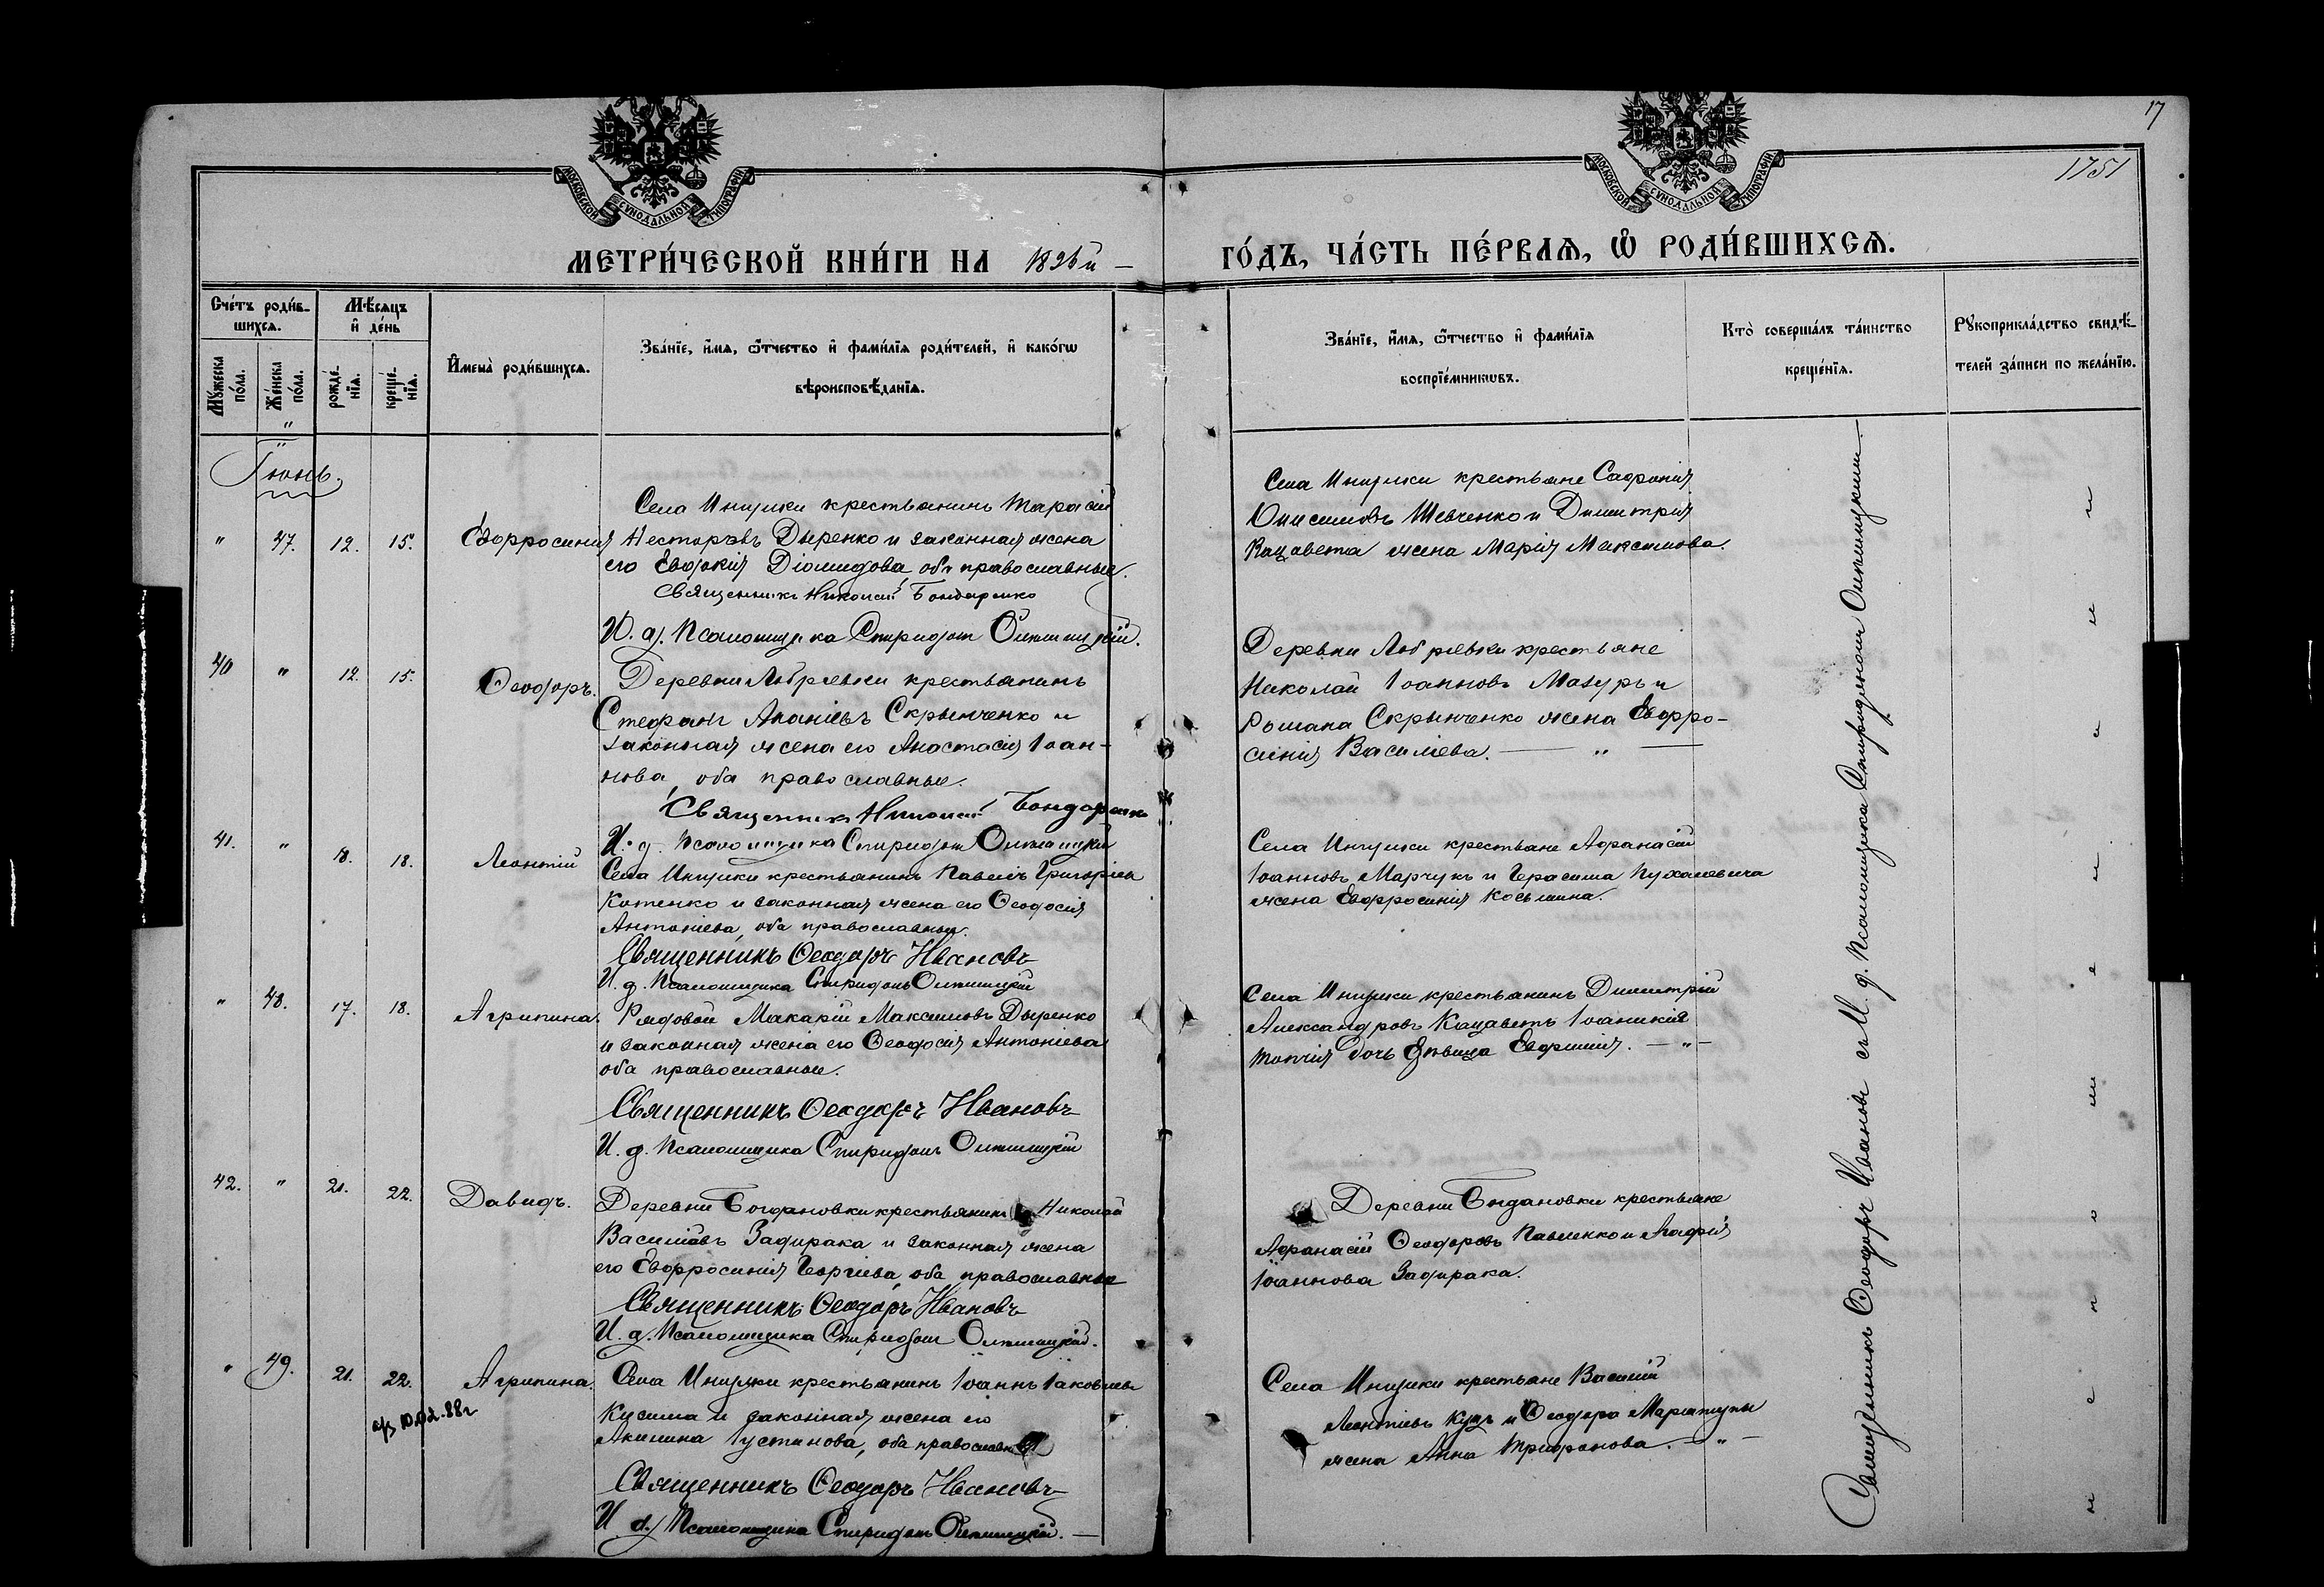 17
1751
МОСКОВСКОЙ СѴНОДАЛЬНОЙ ТИПОГРАФІИ
МОСКОВСКОЙ СѴНОДАЛЬНОЙ ТИПОГРАФІИ
МЕТРИ́ЧЕСКОЙ КНИ́ГИ НА 189 й — ГО́ДЪ, ЧА́СТЬ ПЕ́РВАЯ, Ѡ҆ РОДИ́ВШИХСЯ.
Сче́тъ роди́в-
шихся.
Мѣ́сяцъ
и҆ де́нь
Мꙋ́жеска
по́ла.
Же́нска
по́ла.
рожде́-
нїя.
креще́-
нїя.
И҆мена̀ роди́вшихся.
Зва́нїе, и҆́мя, ѻ҆́тчество и҆ фамі́лїя роди́телей, и҆ како́гѡ
вѣроисповѣ́данїя.
Зва́нїе, и҆́мя, ѻ҆́тчество и҆ фамі́лїя
воспрїе́мникѡвъ.
Кто̀ соверша́лъ та́инство
креще́нїя.
Рꙋкоприкла́дство свидѣ́-
телей за́писи по жела́нїю.
Іюнь.
" 47. 12. 15. Евфросинія
Села крестьянинъ Тарасій
Несторовъ Дыренко и законная жена
его Евдокія Діомидова оба православные.
Священникъ Николай Бондаренко
И. д. Псаломщика Спиридонъ
Села крестьяне Сафроній
Онисимовъ Шевченко и Димитрія
Кацавета жена Марія Максимова.
40 " 12. 15. Ѳеодоръ.
Деревни крестьянинъ
Стефанъ Ананіевъ Скрынченко и
законная жена его Анастасія Іоан-
нова, оба православные.
Священникъ Николай Бондаренко
И. д. Псаломщика Спиридонъ
Деревни крестьяне
Николай Іоанновъ Мазуръ и
Романа Скрынченко жена Евфро-
синія Василіева. — " —
41. " 18. 18. Леонтій
Села крестьянинъ Павелъ Григоріевъ
Котенко и законная жена его Ѳеодосія
Антоніева, оба православные.
Священникъ Ѳеодоръ Ивановъ
И. д. Псаломщика Спиридонъ
Села крестьяне Афанасій
Іоанновъ Марчукъ и Герасима Пухалевича
жена Евфросинія Косьмина.
" 48. 17. 18. Агрипина.
Рядовой Макарій Максимовъ Дыренко
и законная жена его Ѳеодосія Антоніева
оба православные.
Священникъ Ѳеодоръ Ивановъ
И. д. Псаломщика Спиридонъ
Села крестьянинъ Димитрій
Александровъ Кацаветъ Іоаникія
дочь дѣвица Евфимія. — " —
42. " 21. 22. Давидъ.
Деревни Богдановки крестьянинъ Николай
Василіевъ Задирака и законная жена
его Евфросинія Георгіева, оба православные
Священникъ Ѳеодоръ Ивановъ
И. д. Псаломщика Спиридонъ
Деревни Богдановки крестьяне
Афанасій Ѳеодоровъ Павленко и Агафія
Іоаннова Задирака.
" 49. 21. 22. Агрипина.
Села крестьянинъ Іоаннъ Іаковлевъ
и законная жена его
Акилина Іустинова, оба православные
Священникъ Ѳеодоръ Ивановъ
И. д. Псаломщика Спиридонъ
Села крестьяне Василій
Леонтіевъ Куцъ и Ѳеодора
жена Анна Трифонова. — " —
Священникъ Ѳеодоръ Ивановъ съ И. д. Псаломщика Спиридономъ